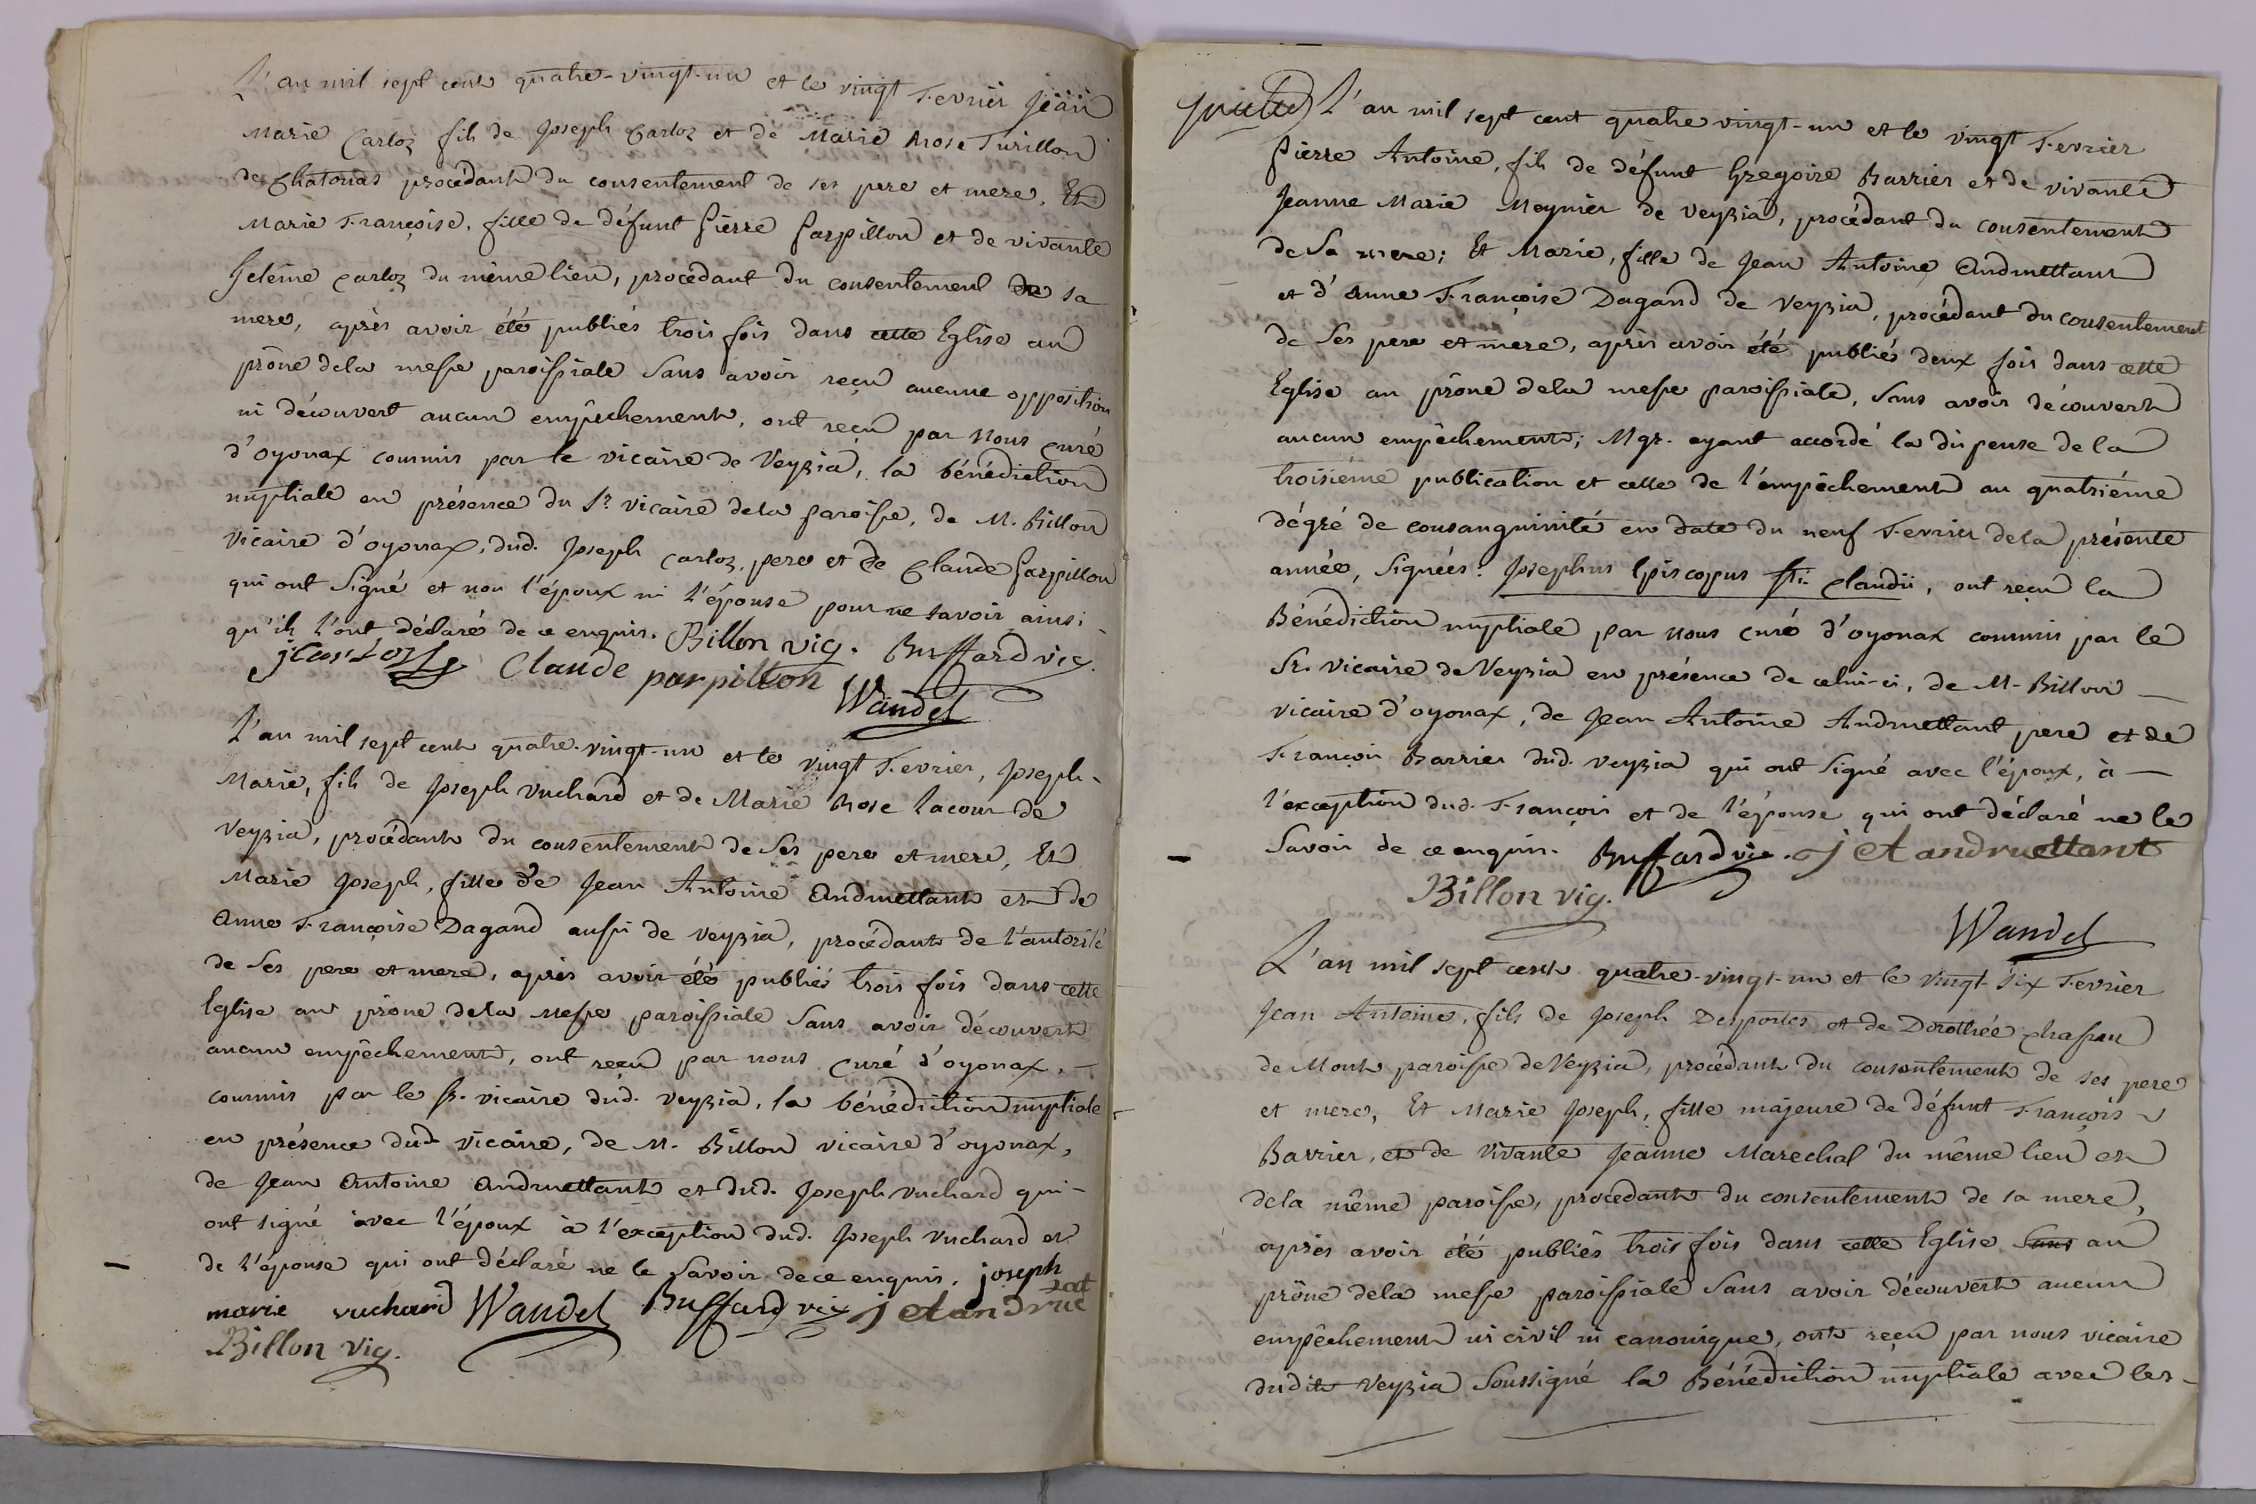 L'an mil sept cent quatre-vingt-un et le vingt Fevrier Jean
Marie Carloz fils de Joseph Carloz et de Marie Rose Turillon
de Chatonas procédant du consentement de ses pere et mere, Et
Marie Françoise, fille de défunt Pierre Parpillon et de vivante
Jeléme Carloz du même lieu, procédant du consentement de sa
mere, après avoir été publiés trois fois dans cette Eglise au
prône dela messe paroissiale Sans avoir reçu aucune opposition
ni découvert aucun empêchement, ont reçu par Nous curé
d'oyonax commis par le vicaire de Veyzia, la bénédiction
nuptiale en présence du Sr. vicaire dela paroisse, de M. Billon
vicaire d'oyonax, dud. Joseph Carloz, pere et de Claude Parpillon
qui ont Signé et non l'époux ni l'épouse pour ne savoir ainsi
qu'ils l'ont déclaré de ce enquis. Billon vic. Buffard vic.
Claude parpillon
Wandel
L'an mil sept cent quatre-vingt-un et le vingt Fevrier, Joseph-
Marie, fils de Joseph Vuchard et de Marie Rose Lacour de
Veyzia, procédant du consentement de Ses pere et mere, Et
Marie Joseph, fille de Jean Antoine Andruettant et de
Anne Françoise Dagand aussi de Veyzia, procédant de l'autorité
de Ses pere et mere, après avoir été publiés trois fois dans cette
Eglise au prône dela Messe paroissiale Sans avoir découvert
aucun empêchement, ont reçu par nous curé d'oyonax,
commis par le Sr. vicaire dud. Veyzia, la bénédiction nuptiale
en présence dud. vicaire, de M. Billon vicaire d'oyonax,
de Jean Antoine Andruettant et dud. Joseph Vuchard qui
ont signé avec l'époux à l'exception dud. Joseph Vuchard et
de l'épouse qui ont déclaré ne le Savoir de ce enquis. joseph
marie vuchard Wandel Buffard vic j et andruetat
Billon vic.
L'an mil sept cent quatre vingt-un et le vingt Fevrier
Pierre Antoine, fils de défunt Gregoire Barrier et de vivante
Jeanne Marie Meynier de Veyzia, procédant du consentement
de Sa mere; Et Marie, fille de Jean Antoine Andruettant
et d'Anne Françoise Dagand de Veyzia, procédant du consentement
de Ses pere et mere, après avoir été publiés deux fois dans cette
Eglise au prône dela messe paroissiale, Sans avoir découvert
aucun empêchement; Mgr. ayant accordé la dispense de la
troisiéme publication et celle de l'empêchement au quatriéme
dégré de consanguinité en date du neuf Fevrier dela présente
année, Signées: Josephus Episcopus Sti. Claudii, ont reçu la
Bénédiction nuptiale par Nous curé d'oyonax commis par le
Sr. Vicaire de Veyzia en présence de celui-ci, de M. Billon
vicaire d'oyonax, de Jean Antoine Andruettant pere et de
François Barrier dud. Veyzia qui ont Signé avec l'époux, à
l'exception dud. François et de l'épouse qui ont déclaré ne le
Savoir de ce enquis. Buffard vic. j et andruettant
Billon vic.
Wandel
L'an mil sept cent quatre-vingt-un et le vingt-six Fevrier
Jean Antoine, fils de Joseph Desportes et de Dorothée Chassau
de Mont paroisse de Veyzia, procédant du consentement de ses pere
et mere, Et Marie Joseph, fille majeure de défunt François
Barrier, et de Vivante Jeanne Marechal du même lieu et
dela même paroisse, procedant du consentement de sa mere,
après avoir été publiés trois fois dans cette Eglise Sans au
prône dela messe paroissiale Sans avoir découvert aucun
empêchement ni civil ni canonique, ont reçu par nous vicaire
dudit Veyzia Soussigné la Bénédiction nuptiale avec les